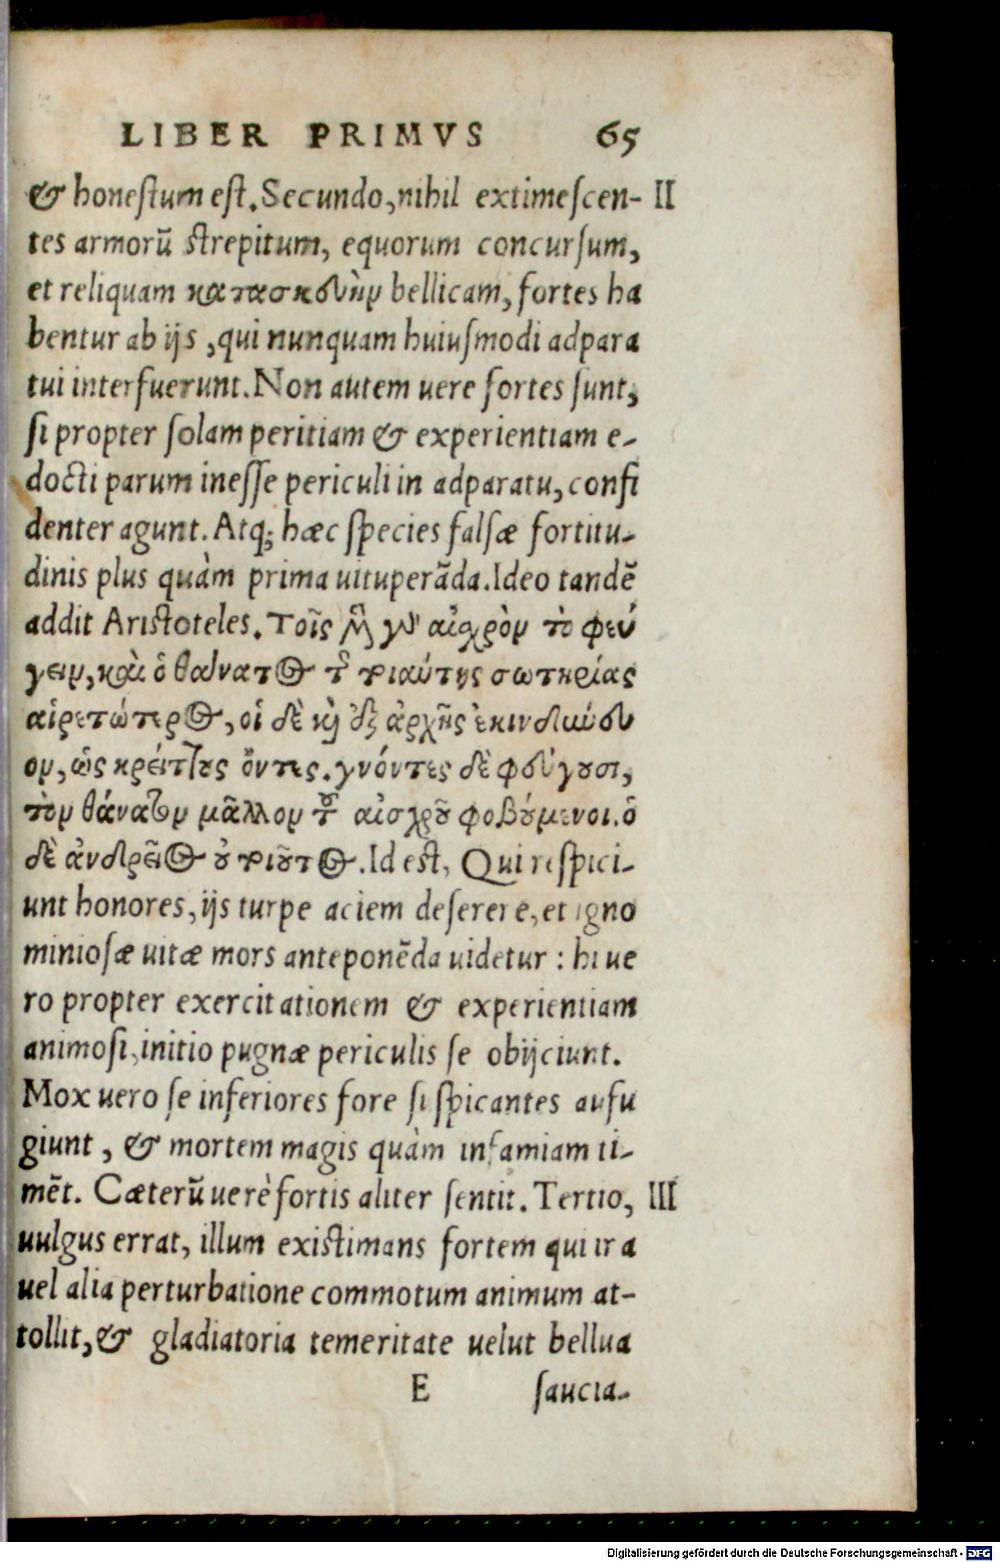 LIBER PRIMVS 65
& honestum est. Secundo, nihil extimescen- II
tes armorū strepitum, equorum concursum,
et reliquam κατασκευὴν bellicam, fortes ha
bentur ab ijs, qui nunquam huiusmodi adpara
tui interfuerunt. Non autem uere fortes sunt,
si propter solam peritiam & experientiam e-
docti parum inesse periculi in adparatu, confi
denter agunt. Atq; hæc species falsæ fortitu-
dinis plus quàm prima uituperāda. Ideo tandē
addit Aristoteles. Τοῖς μὲν γὰρ αἰσχρὸν τὸ φεύ
γειν, καὶ ὁ θάνατος τῆς τοιαύτης σωτηρίας
αἱρετώτερος, οἱ δὲ καὶ ἐξ ἀρχῆς ἐκινδύνευ
ον, ὡς κρείττους ὄντες. γνόντες δὲ φεύγουσι,
τὸν θάνατον μᾶλλον τοῦ αἰσχροῦ φοβούμενοι. ὁ
δὲ ἀνδρεῖος οὐ τοιοῦτος. Id est, Qui respici-
unt honores, ijs turpe aciem deserere, et igno
miniosæ uitæ mors anteponēda uidetur: hi ue
ro propter exercitationem & experientiam
animosi, initio pugnæ periculis se obijciunt.
Mox uero se inferiores fore suspicantes aufu
giunt, & mortem magis quàm infamiam ti-
mēt. Cæterū uerè fortis aliter sentit. Tertio, III
uulgus errat, illum existimans fortem qui ira
uel alia perturbatione commotum animum at-
tollit, & gladiatoria temeritate uelut bellua
E saucia-
Digitalisierung gefördert durch die Deutsche Forschungsgemeinschaft - DFG